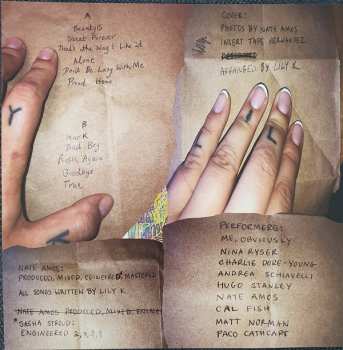 A
Beauty's
Sweet Forever
That's the Way I Like it
Alone
Don't Be Lazy With Me
Proud Home
B
Mark
Don't Cry
Rosie Again
Goodbye
True
COVER:
PHOTOS BY NATE AMOS
INSERT TAPE HERNANDEZ
ARRANGED BY LILY K
Y
K
I
L
NATE AMOS:
PRODUCED, MIXED, ENGINEERED, MASTERED
ALL SONGS WRITTEN BY LILY K
NATE AMOS PRODUCED, MIXED, ENGINE
* SASHA STROUD:
ENGINEERED
PERFORMERS:
ME, OBVIOUSLY
NINA RYSER
CHARLIE DORE-YOUNG
ANDREA SCHIAVELLI
HUGO STANLEY
NATE AMOS
CAL FISH
MATT NORMAN
PACO CATHCART